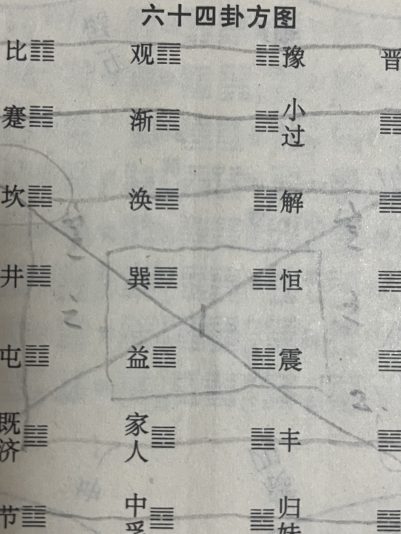 六十四卦方图
比䷇ 观䷓ ䷏豫 晋
蹇䷦ 渐䷴ ䷽小过
坎䷜ 涣䷺ ䷧解
井䷯ 巽䷸ ䷟恒
屯䷂ 益䷩ ䷲震
既济䷾ 家人䷤ ䷶丰
节䷻ 中孚䷼ ䷵归妹
2.